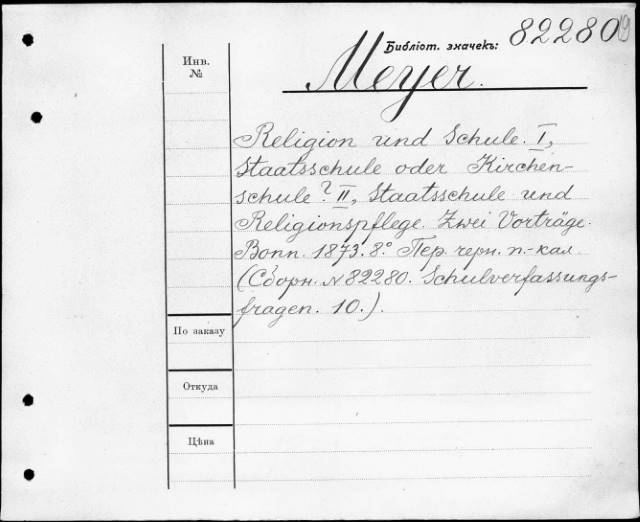 Библіот. значекъ: 82280
19
Инв.
№
Meyer.
Religion und Schule. I,
Staatsschule oder Kirchen-
schule? II, Staatsschule und
Religionspflege. Zwei Vorträge.
Bonn. 1873. 8.° Пер. черн. п.-кал.
(Сборн. № 82280. Schulverfassungs-
fragen. 10.).
По заказу
Откуда
Цѣна